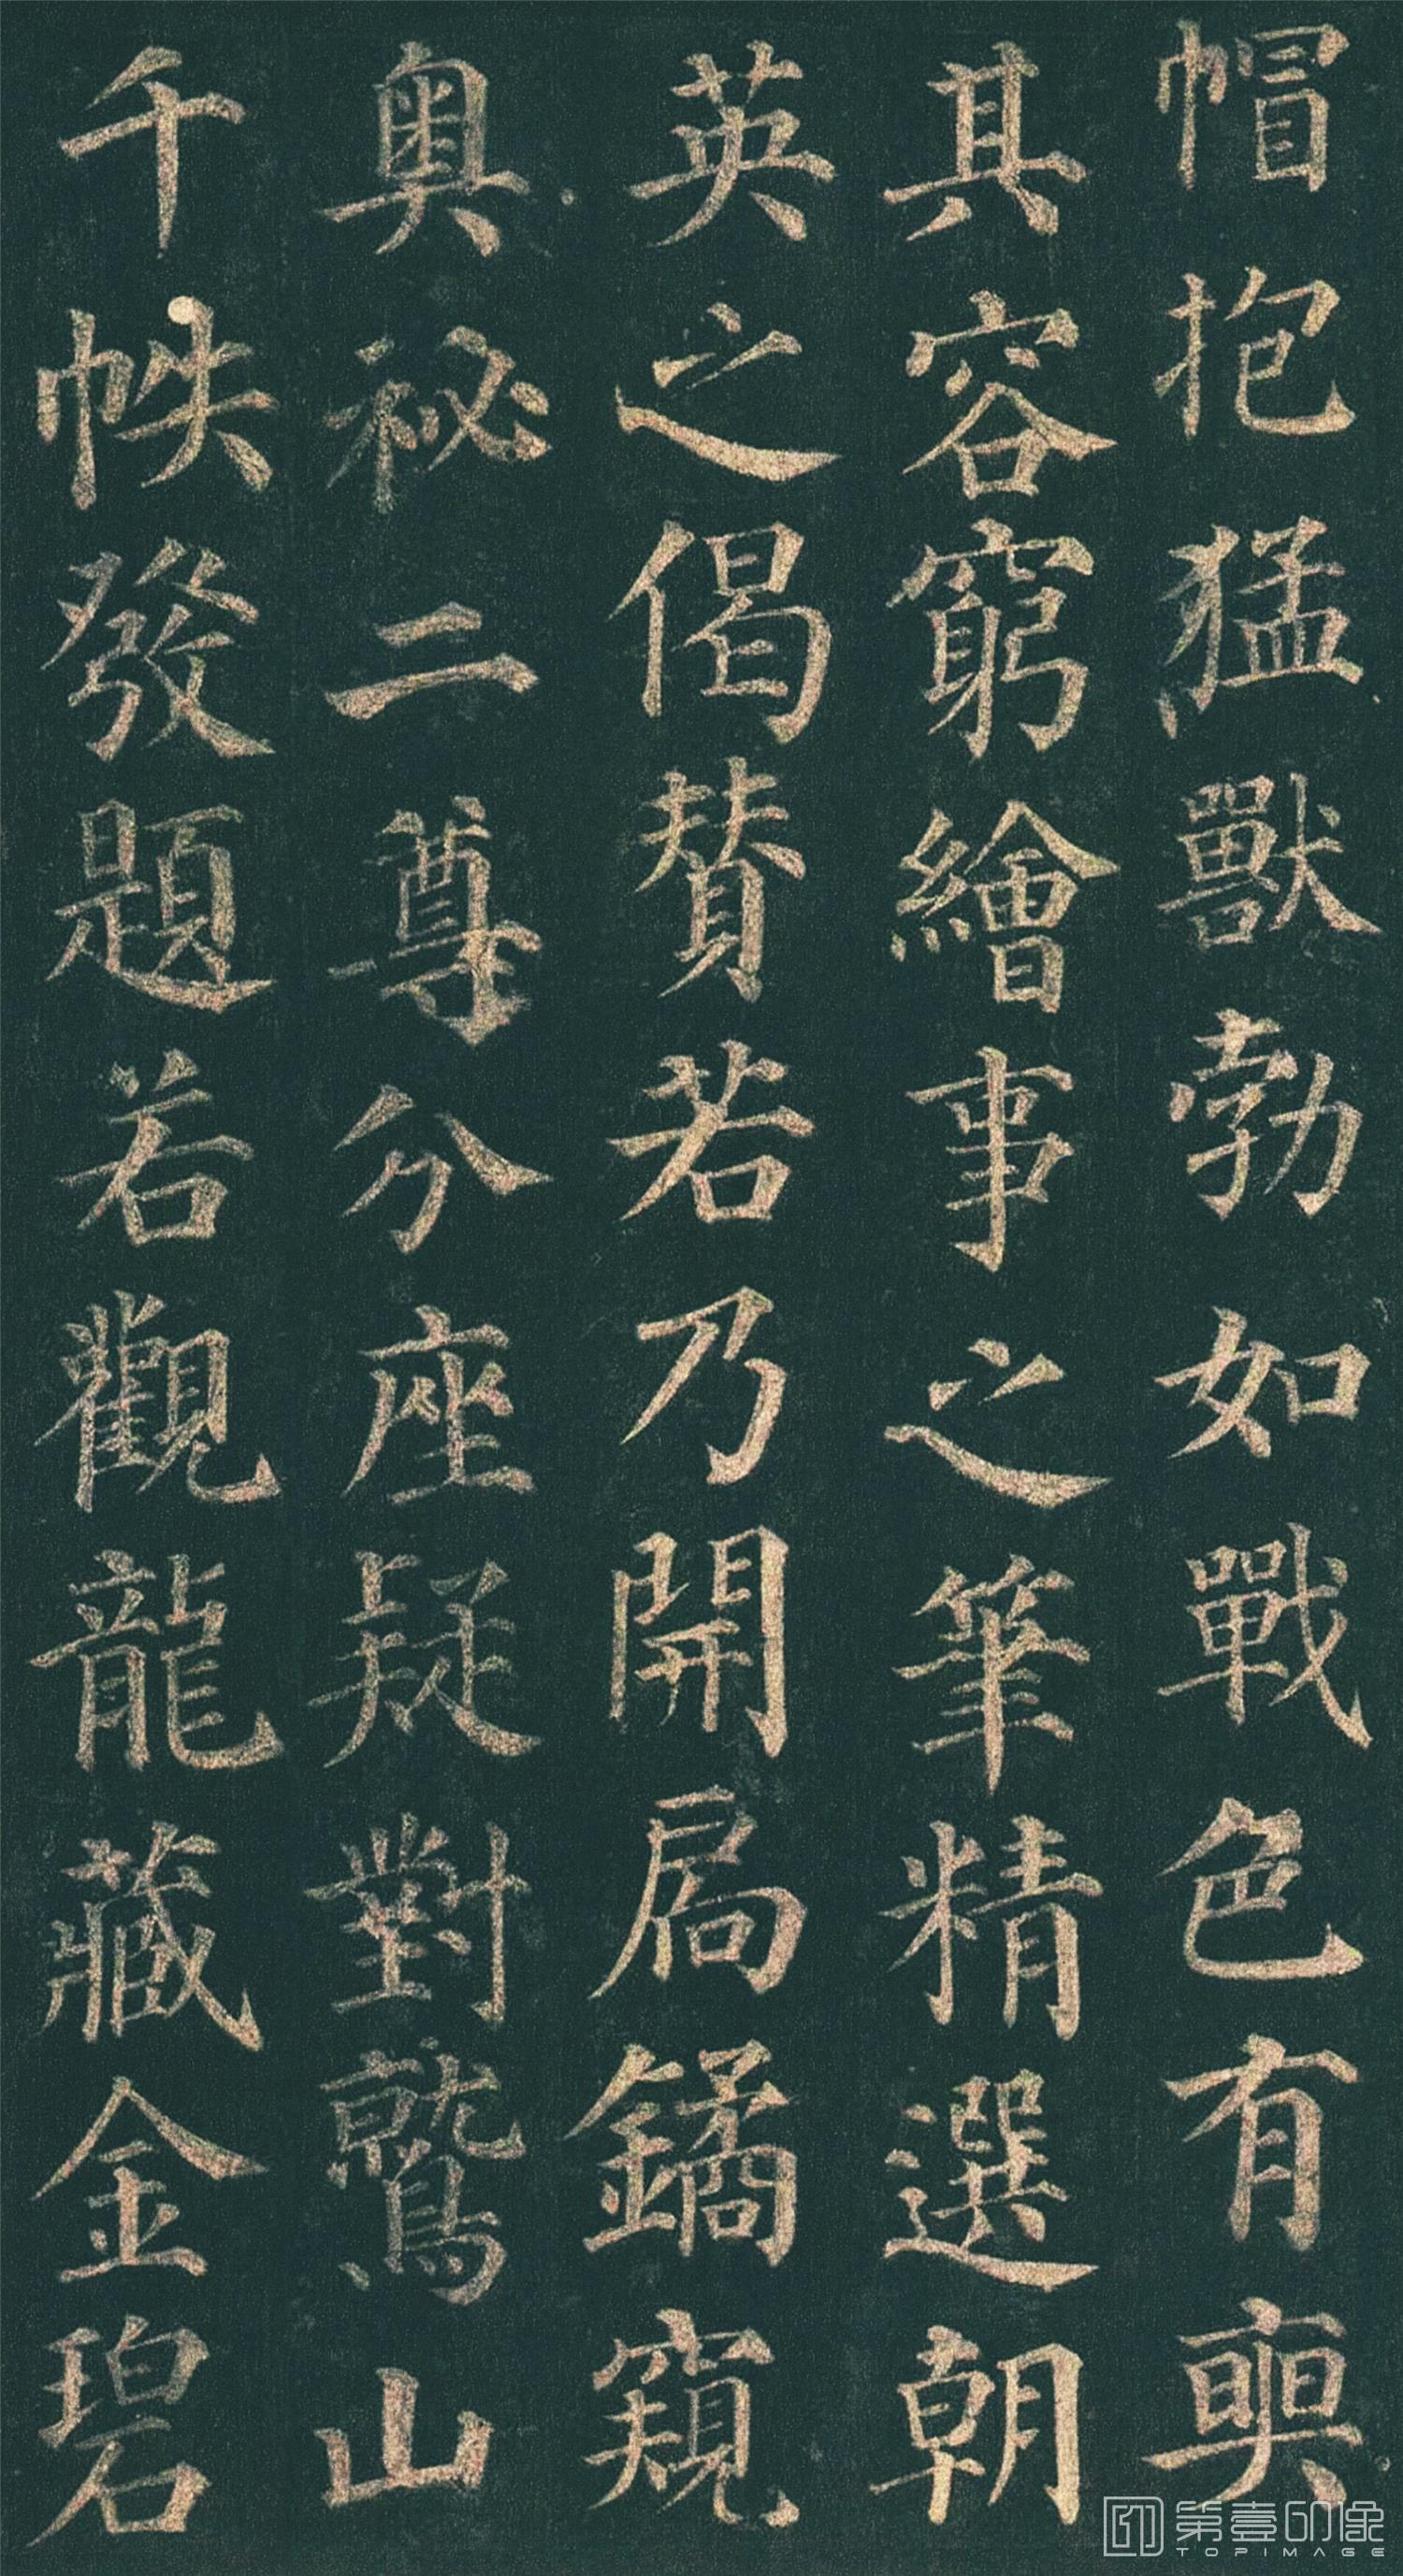 帽抱猛獸勃如戰色有奭
其容窮繪事之筆精選朝
英之偈贊若乃開扃鐍窺
奧祕二尊分座疑對鷲山
千帙發題若觀龍藏金碧
第壹印像
TOPIMAGE